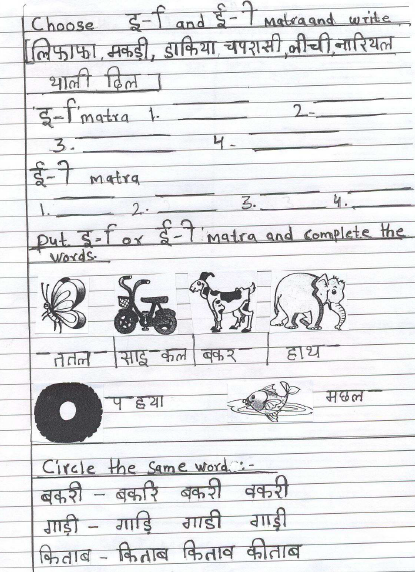 Choose इ-ि and ई-ी matra and write
[लिफाफा, मकड़ी, डाकिया, चपरासी, लीची, नारियल
थाली दिल]
इ-ि matra 1. 2-
3. 4-
ई-ी matra
1. 2. 3. 4.
Put इ-ि or ई-ी matra and complete the
words.
ततल साइ कल बकर हाथ
प हया मछल
Circle the same word :-
बकरी - बकरि बकरी वकरी
गाड़ी - गाड़ि गाडी गाड़ी
किताब - किताब किताव कीताब